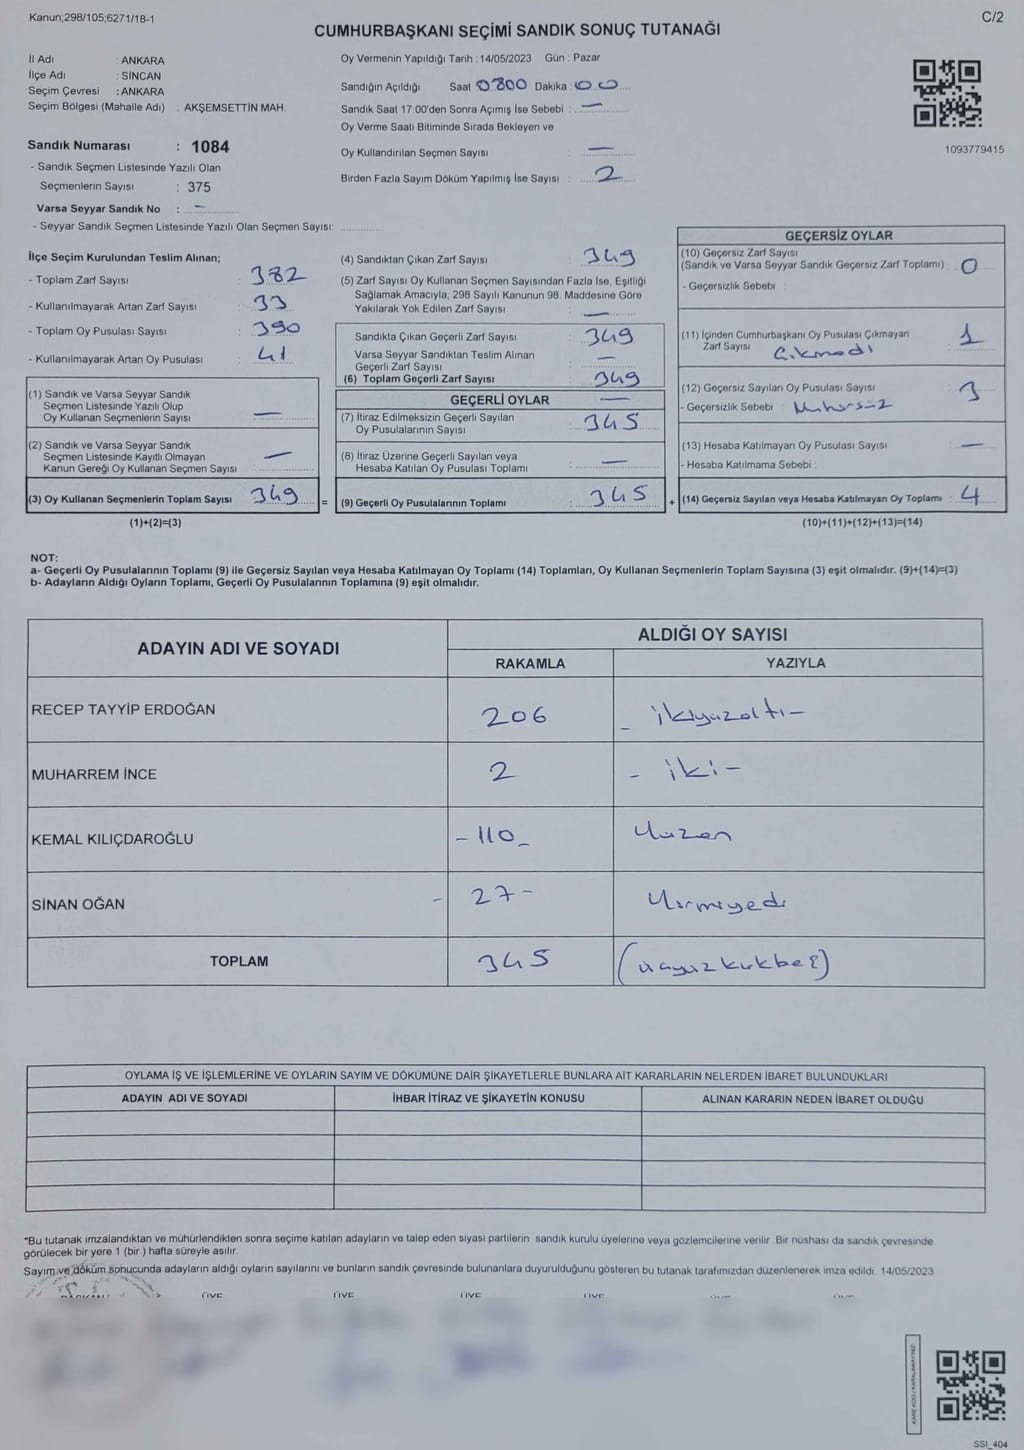 Kanun;298/105;6271/18-1
C/2
CUMHURBAŞKANI SEÇİMİ SANDIK SONUÇ TUTANAĞI
İl Adı : ANKARA
İlçe Adı : SİNCAN
Seçim Çevresi : ANKARA
Seçim Bölgesi (Mahalle Adı) : AKŞEMSETTİN MAH.
Sandık Numarası : 1084
- Sandık Seçmen Listesinde Yazılı Olan
Seçmenlerin Sayısı : 375
Varsa Seyyar Sandık No : –
- Seyyar Sandık Seçmen Listesinde Yazılı Olan Seçmen Sayısı:
Oy Vermenin Yapıldığı Tarih : 14/05/2023 Gün : Pazar
Sandığın Açıldığı Saat 0800 Dakika : 00
Sandık Saat 17.00'den Sonra Açımış İse Sebebi : —
Oy Verme Saati Bitiminde Sırada Bekleyen ve
Oy Kullandırılan Seçmen Sayısı : —
Birden Fazla Sayım Döküm Yapılmış İse Sayısı : 2
1093779415
İlçe Seçim Kurulundan Teslim Alınan;
- Toplam Zarf Sayısı : 382
- Kullanılmayarak Artan Zarf Sayısı : 33
- Toplam Oy Pusulası Sayısı : 390
- Kullanılmayarak Artan Oy Pusulası : 41
(1) Sandık ve Varsa Seyyar Sandık
Seçmen Listesinde Yazılı Olup
Oy Kullanan Seçmenlerin Sayısı : —
(2) Sandık ve Varsa Seyyar Sandık
Seçmen Listesinde Kayıtlı Olmayan
Kanun Gereği Oy Kullanan Seçmen Sayısı : —
(3) Oy Kullanan Seçmenlerin Toplam Sayısı 349 =
(1)+(2)=(3)
(4) Sandıktan Çıkan Zarf Sayısı : 349
(5) Zarf Sayısı Oy Kullanan Seçmen Sayısından Fazla İse, Eşitliği
Sağlamak Amacıyla, 298 Sayılı Kanunun 98. Maddesine Göre
Yakılarak Yok Edilen Zarf Sayısı : —
Sandıkta Çıkan Geçerli Zarf Sayısı : 349
Varsa Seyyar Sandıktan Teslim Alınan
Geçerli Zarf Sayısı : —
(6) Toplam Geçerli Zarf Sayısı : 349
GEÇERLİ OYLAR —
(7) İtiraz Edilmeksizin Geçerli Sayılan
Oy Pusulalarının Sayısı : 345
(8) İtiraz Üzerine Geçerli Sayılan veya
Hesaba Katılan Oy Pusulası Toplamı : —
(9) Geçerli Oy Pusulalarının Toplamı : 345 +
GEÇERSİZ OYLAR
(10) Geçersiz Zarf Sayısı
(Sandık ve Varsa Seyyar Sandık Geçersiz Zarf Toplamı) : 0
- Geçersizlik Sebebi :
(11) İçinden Cumhurbaşkanı Oy Pusulası Çıkmayan
Zarf Sayısı Çıkmadı : 1
(12) Geçersiz Sayılan Oy Pusulası Sayısı : 3
- Geçersizlik Sebebi : Mühürsüz
(13) Hesaba Katılmayan Oy Pusulası Sayısı : —
- Hesaba Katılmama Sebebi :
(14) Geçersiz Sayılan veya Hesaba Katılmayan Oy Toplamı : 4
(10)+(11)+(12)+(13)=(14)
NOT:
a- Geçerli Oy Pusulalarının Toplamı (9) ile Geçersiz Sayılan veya Hesaba Katılmayan Oy Toplamı (14) Toplamları, Oy Kullanan Seçmenlerin Toplam Sayısına (3) eşit olmalıdır. (9)+(14)=(3)
b- Adayların Aldığı Oyların Toplamı, Geçerli Oy Pusulalarının Toplamına (9) eşit olmalıdır.
ADAYIN ADI VE SOYADI ALDIĞI OY SAYISI
RAKAMLA YAZIYLA
RECEP TAYYİP ERDOĞAN 206 – ikiyüzaltı –
MUHARREM İNCE 2 – iki –
KEMAL KILIÇDAROĞLU – 110 – Yüzon
SİNAN OĞAN – 27 – Yirmiyedi
TOPLAM 345 (üçyüzkırkbeş)
OYLAMA İŞ VE İŞLEMLERİNE VE OYLARIN SAYIM VE DÖKÜMÜNE DAİR ŞİKAYETLERLE BUNLARA AİT KARARLARIN NELERDEN İBARET BULUNDUKLARI
ADAYIN ADI VE SOYADI İHBAR İTİRAZ VE ŞİKAYETİN KONUSU ALINAN KARARIN NEDEN İBARET OLDUĞU
*Bu tutanak imzalandıktan ve mühürlendikten sonra seçime katılan adayların ve talep eden siyasi partilerin sandık kurulu üyelerine veya gözlemcilerine verilir. Bir nüshası da sandık çevresinde
görülecek bir yere 1 (bir ) hafta süreyle asılır.
Sayım ve döküm sonucunda adayların aldığı oyların sayılarını ve bunların sandık çevresinde bulunanlara duyurulduğunu gösteren bu tutanak tarafımızdan düzenlenerek imza edildi. 14/05/2023
BAŞKAN ÜYE ÜYE ÜYE ÜYE
SSİ_404